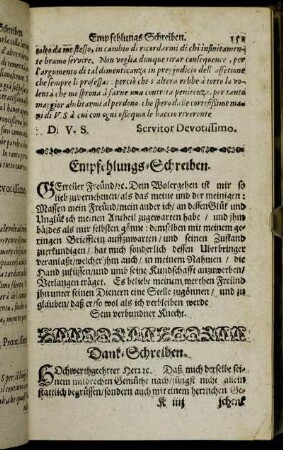 Empfehlungs Schreiben.
volto da me stesso, in cambio di ricordarmi di chi infinitamen-
te bramo servire. Non voglia dunque tirar consequence, per
l'argomento di tal dimenticanza in pregiudicio dell' affetione
che sempre li professai: perciò che s' altera rebbe à torto la vo-
lontà che mi sprona à farne una contrita penitenza, per tanto
maggior abilitarmi al perdono che spero dalle cortesissime ma-
ni di V. S à cui con ogni ossequio le baccio riverente
D. V. S. Servitor Devotissimo.
Empfehlungs-Schreiben.
GEerter Freünd/ꝛc. Dein Wolergehen ist mir so
lieb zuvernehmen/ als das meine und der meinigen:
Massen mein Freünd/ mein ander ich/ an dessen Glük und
Unglük ich meinen Antheil zugewarten habe / und ihm
beides als mir selbsten gönne: demselben mit meinem ge-
ringen Briefflein aufzuwarten/ und seinen Zustand
zuerkundigen/ hat mich sonderlich dessen Uberbringer
veranlasst/ welcher ihm auch/ in meinem Nahmen / die
Hand zuküssen/ und umb seine Kundschafft anzuwerben/
Verlangen träget. Es beliebe meinem werthen Freünd
ihn unter seinen Dienern eine Stelle zugönnen / und zu
glauben/ daß er/ so wol als ich verbleiben werde
Sein verbundner Knecht.
Dank-Schreiben.
HOchwerthgeehrter Herr ꝛc. Daß mich derselbe sei-
nem
nach/ jüngst nicht allein
stattlich begrüssen/ sondern auch mit einem herrlichen Ge-
K iiij schenk